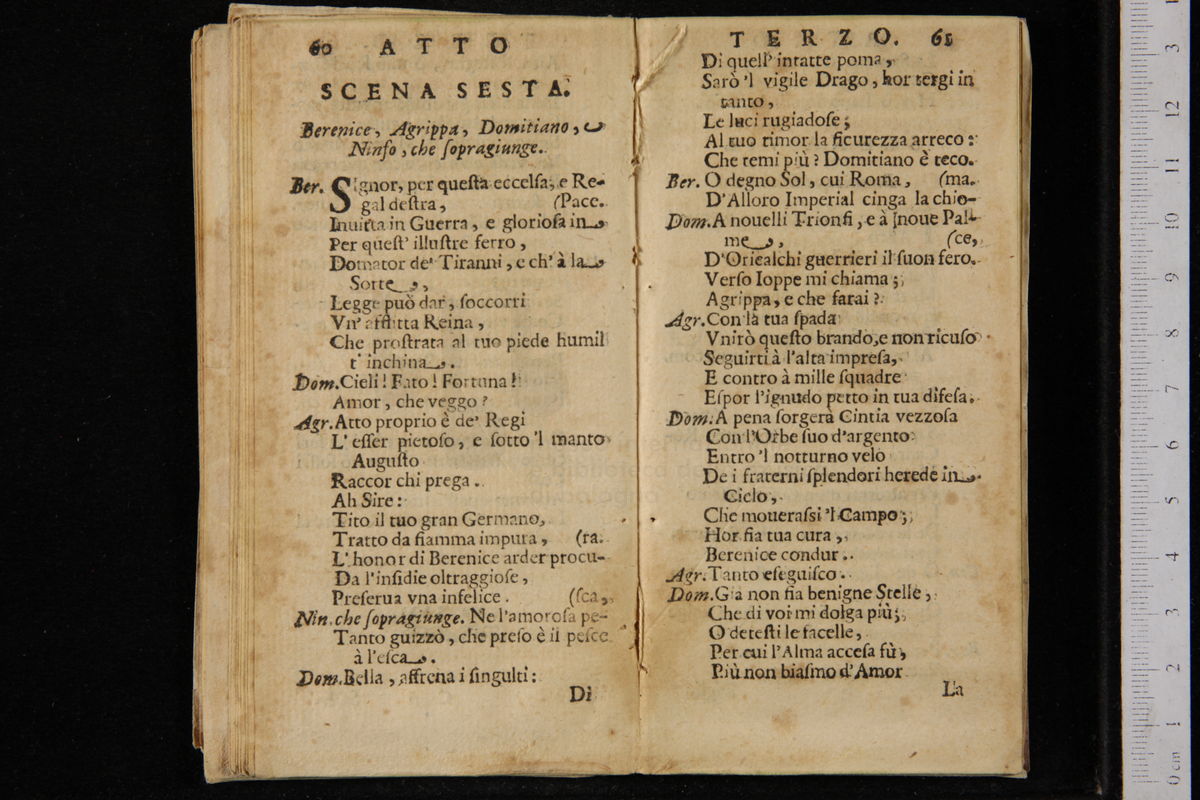 60 ATTO
SCENA SESTA.
Berenice, Agrippa, Domitiano, e
Ninfo, che sopragiunge.
Ber. Signor, per questa eccelsa, e Re-
gal destra, (Pace.
Inuitta in Guerra, e gloriosa in
Per quest' illustre ferro,
Domator de' Tiranni, e ch' à la
Sorte,
Legge può dar, soccorri
Vn' afflitta Reina,
Che prostrata al tuo piede humil
t' inchina.
Dom. Cieli! Fato! Fortuna!
Amor, che veggo?
Agr. Atto proprio è de' Regi
L' esser pietoso, e sotto 'l manto
Augusto
Raccor chi prega.
Ah Sire:
Tito il tuo gran Germano,
Tratto da fiamma impura, (ra.
L' honor di Berenice arder procu-
Da l'insidie oltraggiose,
Preserua vna infelice. (sca,
Nin. che sopragiunge. Ne l'amorosa pe-
Tanto guizzò, che preso è il pesce
à l'esca.
Dom. Bella, affrena i singulti:
Di
TERZO. 61
Di quell' intatte poma,
Sarò 'l vigile Drago, hor tergi in
tanto,
Le luci rugiadose;
Al tuo timor la sicurezza arreco:
Che temi più? Domitiano è teco.
Ber. O degno Sol, cui Roma, (ma.
D'Alloro Imperial cinga la chio-
Dom. A nouelli Trionfi, e à noue Pal-
me, (ce,
D'Oricalchi guerrieri il suon fero.
Verso Ioppe mi chiama;
Agrippa, e che farai?
Agr. Con la tua spada
Vnirò questo brando, e non ricuso
Seguirti à l'alta impresa,
E contro à mille squadre
Espor l'ignudo petto in tua difesa.
Dom. A pena sorgerà Cintia vezzosa
Con l'Orbe suo d'argento
Entro 'l notturno velo
De i fraterni splendori herede in
Cielo,
Che mouerassi 'l Campo;
Hor fia tua cura,
Berenice condur.
Agr. Tanto eseguisco.
Dom. Gia non fia benigne Stelle,
Che di voi mi dolga più;
O detesti le facelle,
Per cui l'Alma accesa fù,
Più non biasmo d'Amor
La